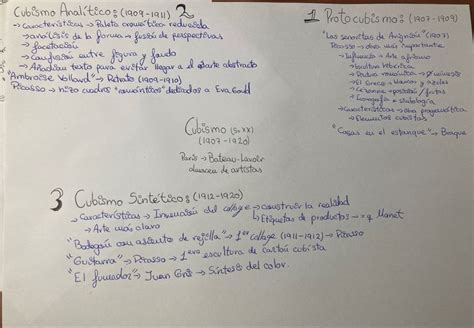 1 Protocubismo: (1907-1909)
"Las señoritas de Avignon" (1907)
Picasso → obra más importante
→ Influencia → Arte africano
→ escultura ibérica
→ Pintura románica →
→ El Greco → blancos y azules
→ Cézanne →
→ Iconografía e simbología
→ Características → obra programática
→ Elementos cubistas
"Casas en el estanque" → Braque
Cubismo Analítico: (1909-1911) 2
→ Características → Paleta cromática reducida
→ análisis de la forma → fusión de perspectivas
→ facetación
→ confusión entre figura y fondo
→ Añadían texto para evitar llegar a el arte abstracto
"Ambroise Vollard" → Retrato (1909-1910)
Picasso → hizo cuadros "románticos" dedicados a Eva Gouel
Cubismo (s.XX)
(1907-1920)
París → Bateau-Lavoir
almacén de artistas
3 Cubismo Sintético: (1912-1920)
→ Características → Invención del collage → construir la realidad
→ Etiquetas de productos → Manet
→ Arte más claro
"Bodegón con asiento de rejilla" → 1er collage (1911-1912) → Picasso
"Guitarra" → Picasso → 1era escultura de cartón cubista
"El fumador" → Juan Gris → Síntesis del color.